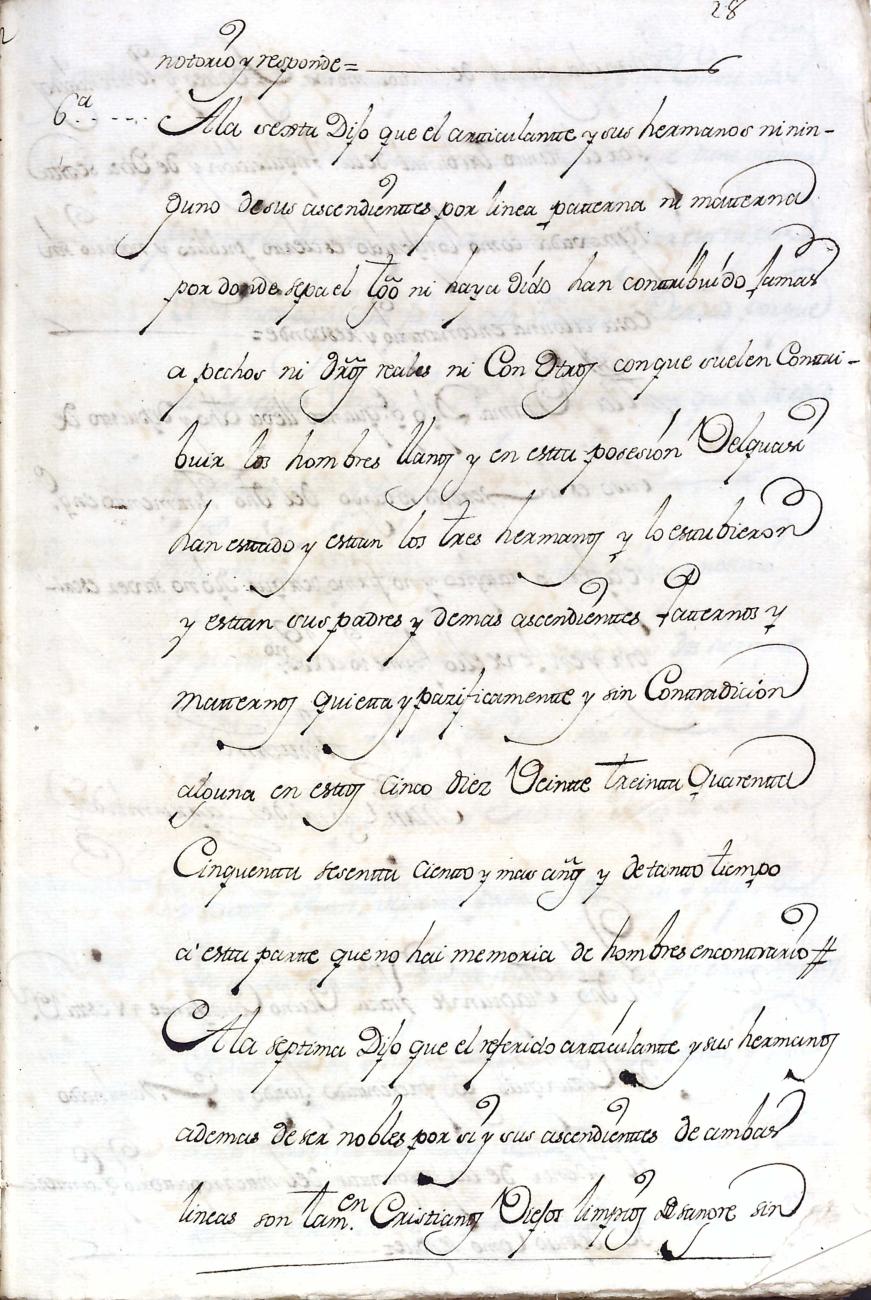 28
notorio y responde=
6ª A la sextta Dijo que el artticulantte y sus hermanos ni nin-
guno de sus ascendienttes por linea patterna ni matterna
por donde sepa el tgõ ni haya oido han conttribuido jamas
a pechos ni dr̃os reales ni Con Otros con que suelen Conttri-
buir los hombres llanos y en estta posesión Velquasi
han esttado y esttan los tres hermanos y lo esttubieron
y esttan sus padres y demas ascendienttes Patternos y
matternos quietta y pazificamentte y sin Conttradición
alguna en esttos Cinco diez Veintte treintta Quarentta
Cinquentta sesentta Cientto y mas añ̃os y de tantto tiempo
a' estta partte que no hai memoria de hombres en conttrario #
A la septima Dijo que el referido artticulantte y sus hermanos
ademas de ser nobles por si y sus ascendienttes de ambas
lineas son tam.en Cristianos Viejos limpios de sangre sin